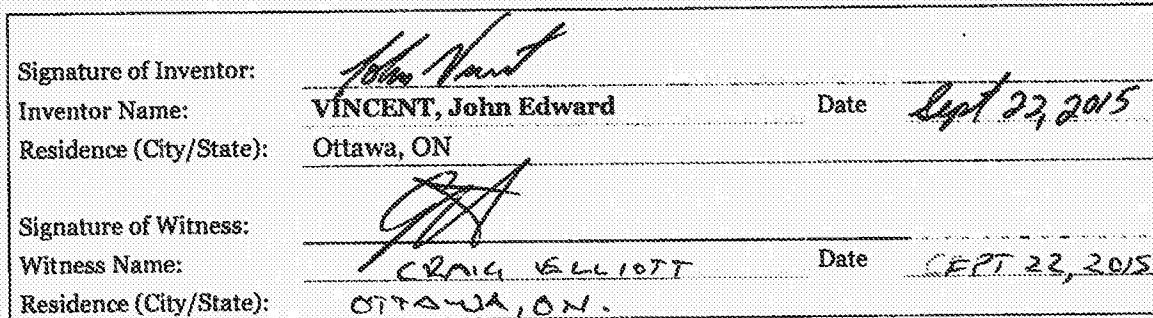 Signature of Inventor: John Vincent
Inventor Name: VINCENT, John Edward Date Sept 22, 2015
Residence (City/State): Ottawa, ON
Signature of Witness:
Witness Name: CRAIG ELLIOTT Date SEPT 22, 2015
Residence (City/State): OTTAWA, ON.